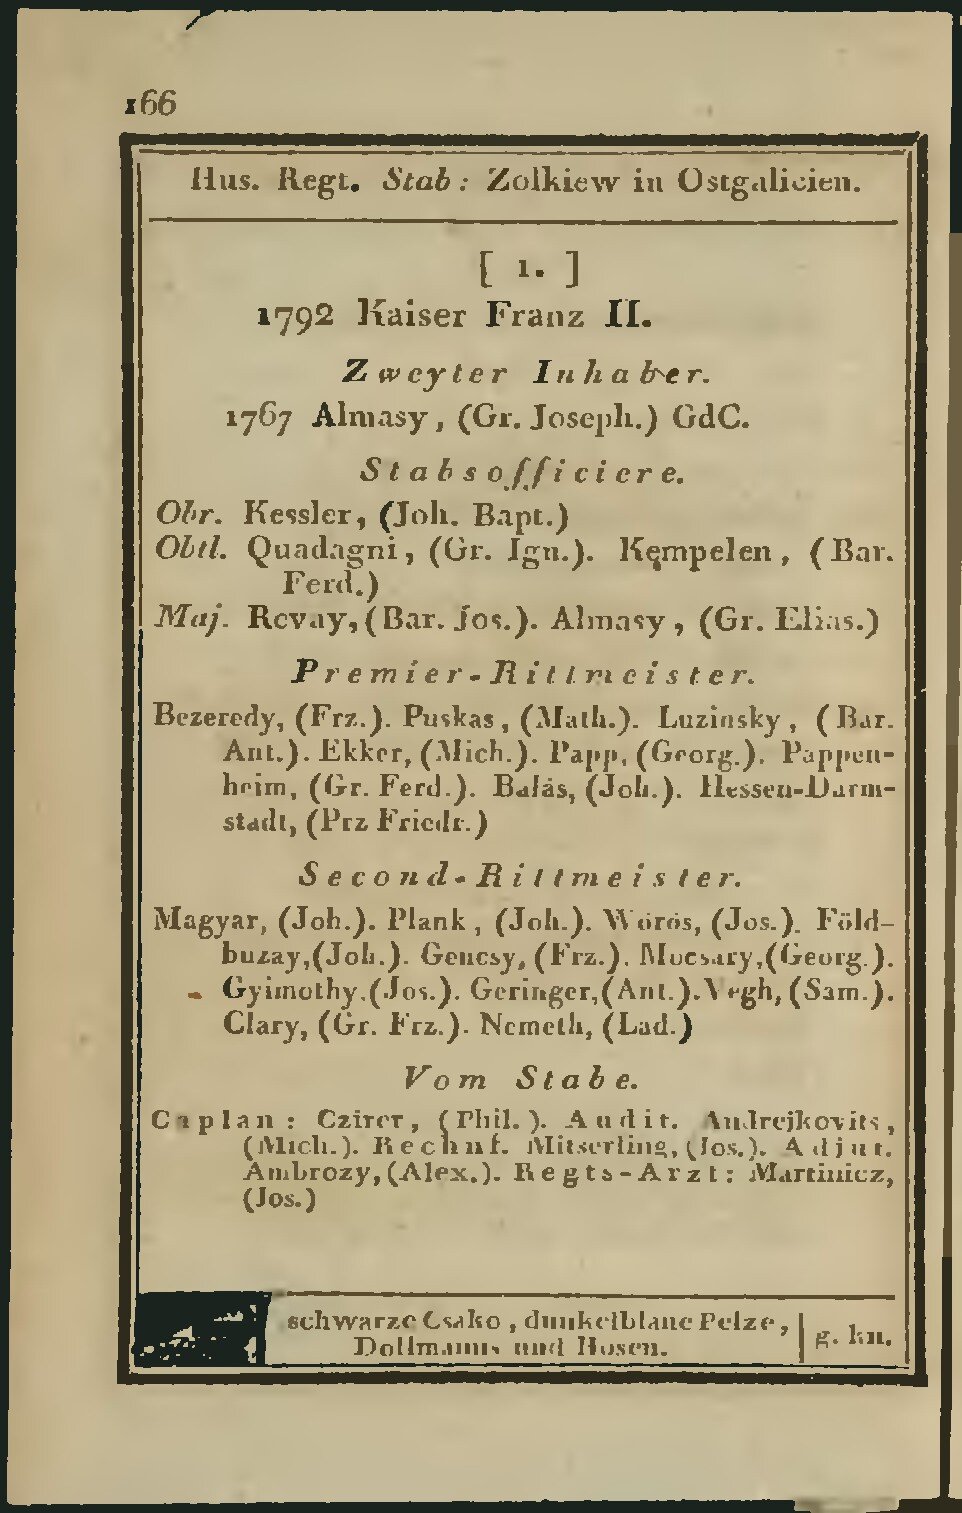 166
Hus. Regt. Stab: Zolkiew in Ostgalicien.
[ 1. ]
1792 Kaiser Franz II.
Zweyter Inhaber.
1767 Almasy, (Gr. Joseph.) GdC.
Stabsofficiere.
Obr. Kessler, (Joh. Bapt.)
Obtl. Quadagni, (Gr. Ign.). Kempelen, (Bar.
Ferd.)
Maj. Revay, (Bar. Jos.). Almasy, (Gr. Elias.)
Premier-Rittmeister.
Bezeredy, (Frz.). Puskas, (Math.). Luzinsky, (Bar.
Ant.). Ekker, (Mich.). Papp, (Georg.). Pappen-
heim, (Gr. Ferd.). Balás, (Joh.). Hessen-Darm-
stadt, (Prz Friedr.)
Second-Rittmeister.
Magyar, (Joh.). Plank, (Joh.). Wörös, (Jos.). Föld-
buzay, (Joh.). Gencsy, (Frz.). Mocsary, (Georg.).
Gyimothy, (Jos.). Geringer, (Ant.). Vegh, (Sam.).
Clary, (Gr. Frz.). Nemeth, (Lad.)
Vom Stabe.
Caplan: Czirer, (Phil.). Audit. Andrejkovits,
(Mich.). Rechnf. Mitserling, (Jos.). Adjut.
Ambrozy, (Alex.). Regts-Arzt: Martinicz,
(Jos.)
schwarze Csako, dunkelblaue Pelze,
Dollmanns und Hosen.
g. kn.